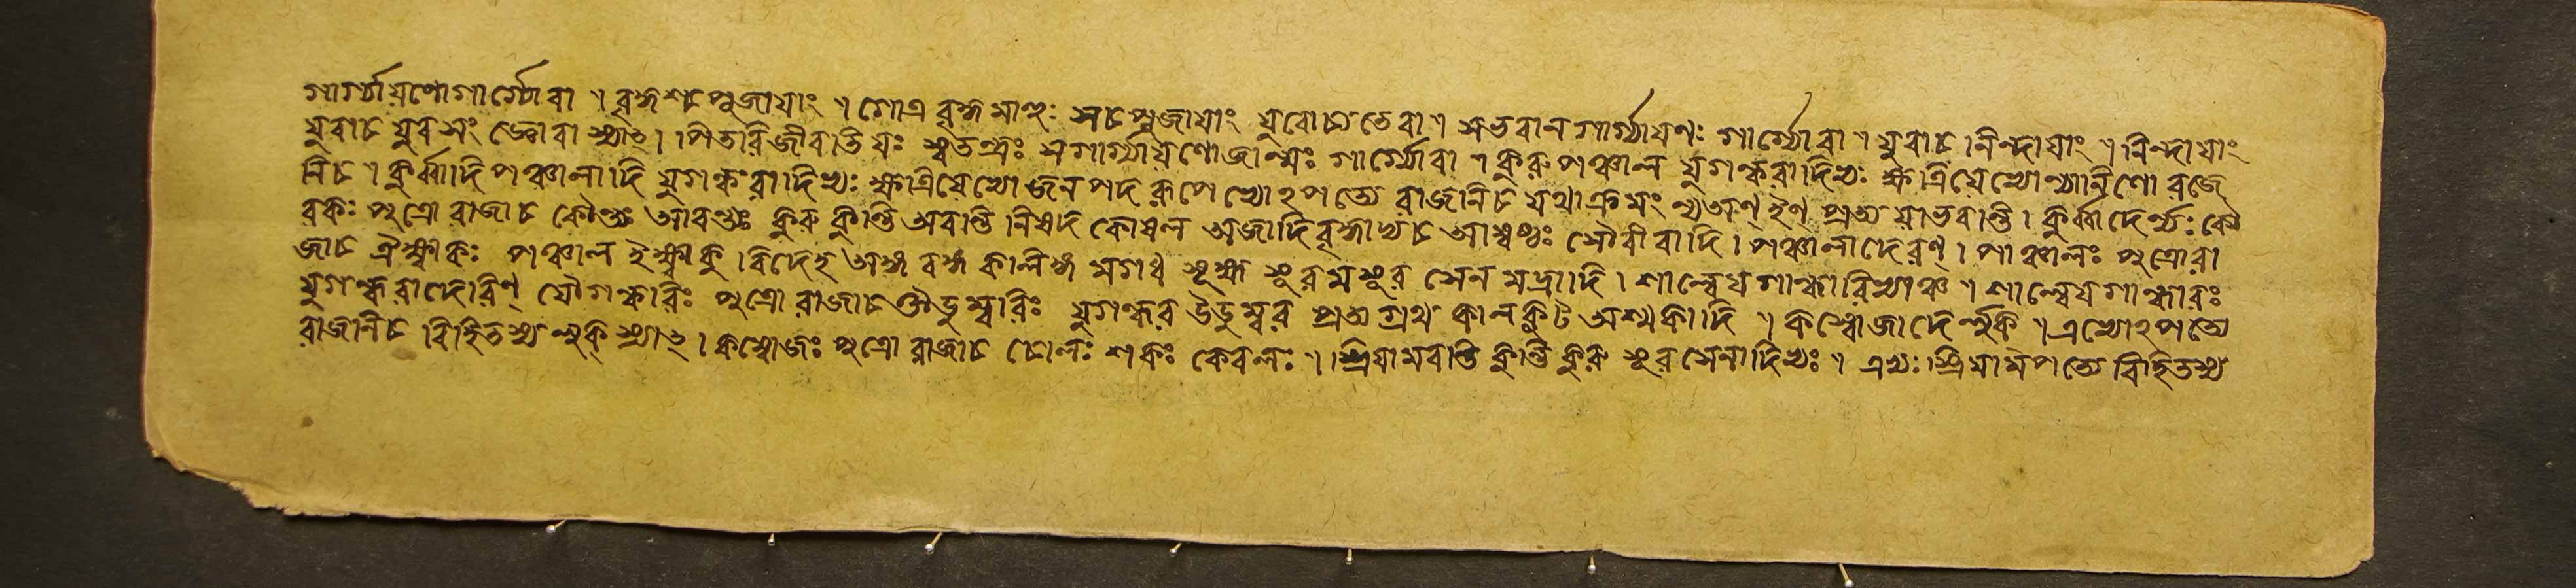 গার্গ্যায়ণোগার্গ্যোবা । বৃদ্ধশ্চপুজায়াং । গোত্র বৃদ্ধমাহুঃ সচপুজায়াং যুবোচ্যতেবা । সভবান গার্গ্যায়ণঃ গার্গ্যোবা । যুবাচ নিন্দায়াং । নিন্দায়াং
যুবাচ যুবসংজ্ঞোবা স্যাৎ । পিতরিজীবতিযঃ স্বতন্ত্রঃ সগার্গ্যায়ণোজাল্মঃ গার্গ্যোবা । কুরু পঞ্চাল যুগন্ধরাদিভ্যঃ ক্ষত্রিয়েভ্যো ণ্যানিণো রাজ্ঞে
নিচ । কুর্ব্বাদি পঞ্চালাদি যুগন্ধরাদিভ্যঃ ক্ষত্রিয়েভ্যো জনপদ রূপেভ্যোঽপত্যে রাজানিচ যথাক্রমং ণ্যঅণ্ ইণ্ প্রত্যয়াভবন্তি । কুর্ব্বাদের্ণ্যঃ কৌ
রব্যঃ পুত্রো রাজাচ কৌন্ত্যঃ আবন্ত্যঃ কুরু কুন্তি অবন্তি নিষদ কোষল অজাদি বৃদ্ধাভ্যচ আম্বষ্ঠ্যঃ সৌবীরাদি । পঞ্চালাদেরণ্ । পাঞ্চালঃ পুত্রোরা
জাচ ঐক্ষ্বাকঃ পঞ্চাল ইক্ষ্বাকু বিদেহ অঙ্গ বঙ্গ কলিঙ্গ মগধ সূহ্ম সূরমসূর সেন মদ্রাদি । শাল্বেয়গান্ধারিভ্যাঞ্চ । শাল্বেয়গান্ধারঃ
যুগন্ধরাদেরিণ্ যৌগন্ধরিঃ পুত্রো রাজাচ ঔডুম্বরিঃ যুগন্ধর উডুম্বর প্রত্যগ্রথ কালকুট অশ্মকাদি । কম্বোজাদের্লুক্ । এভ্যোঽপত্যে
রাজানিচ বিহিতস্য লুক্ স্যাৎ । কম্বোজঃ পুত্রো রাজাচ চোলঃ শকঃ কেবলঃ । স্ত্রিয়ামবন্তি কুন্তি কুরু সূরসেনাদিভ্যঃ । এভ্যঃ স্ত্রিয়ামপত্যে বিহিতস্য